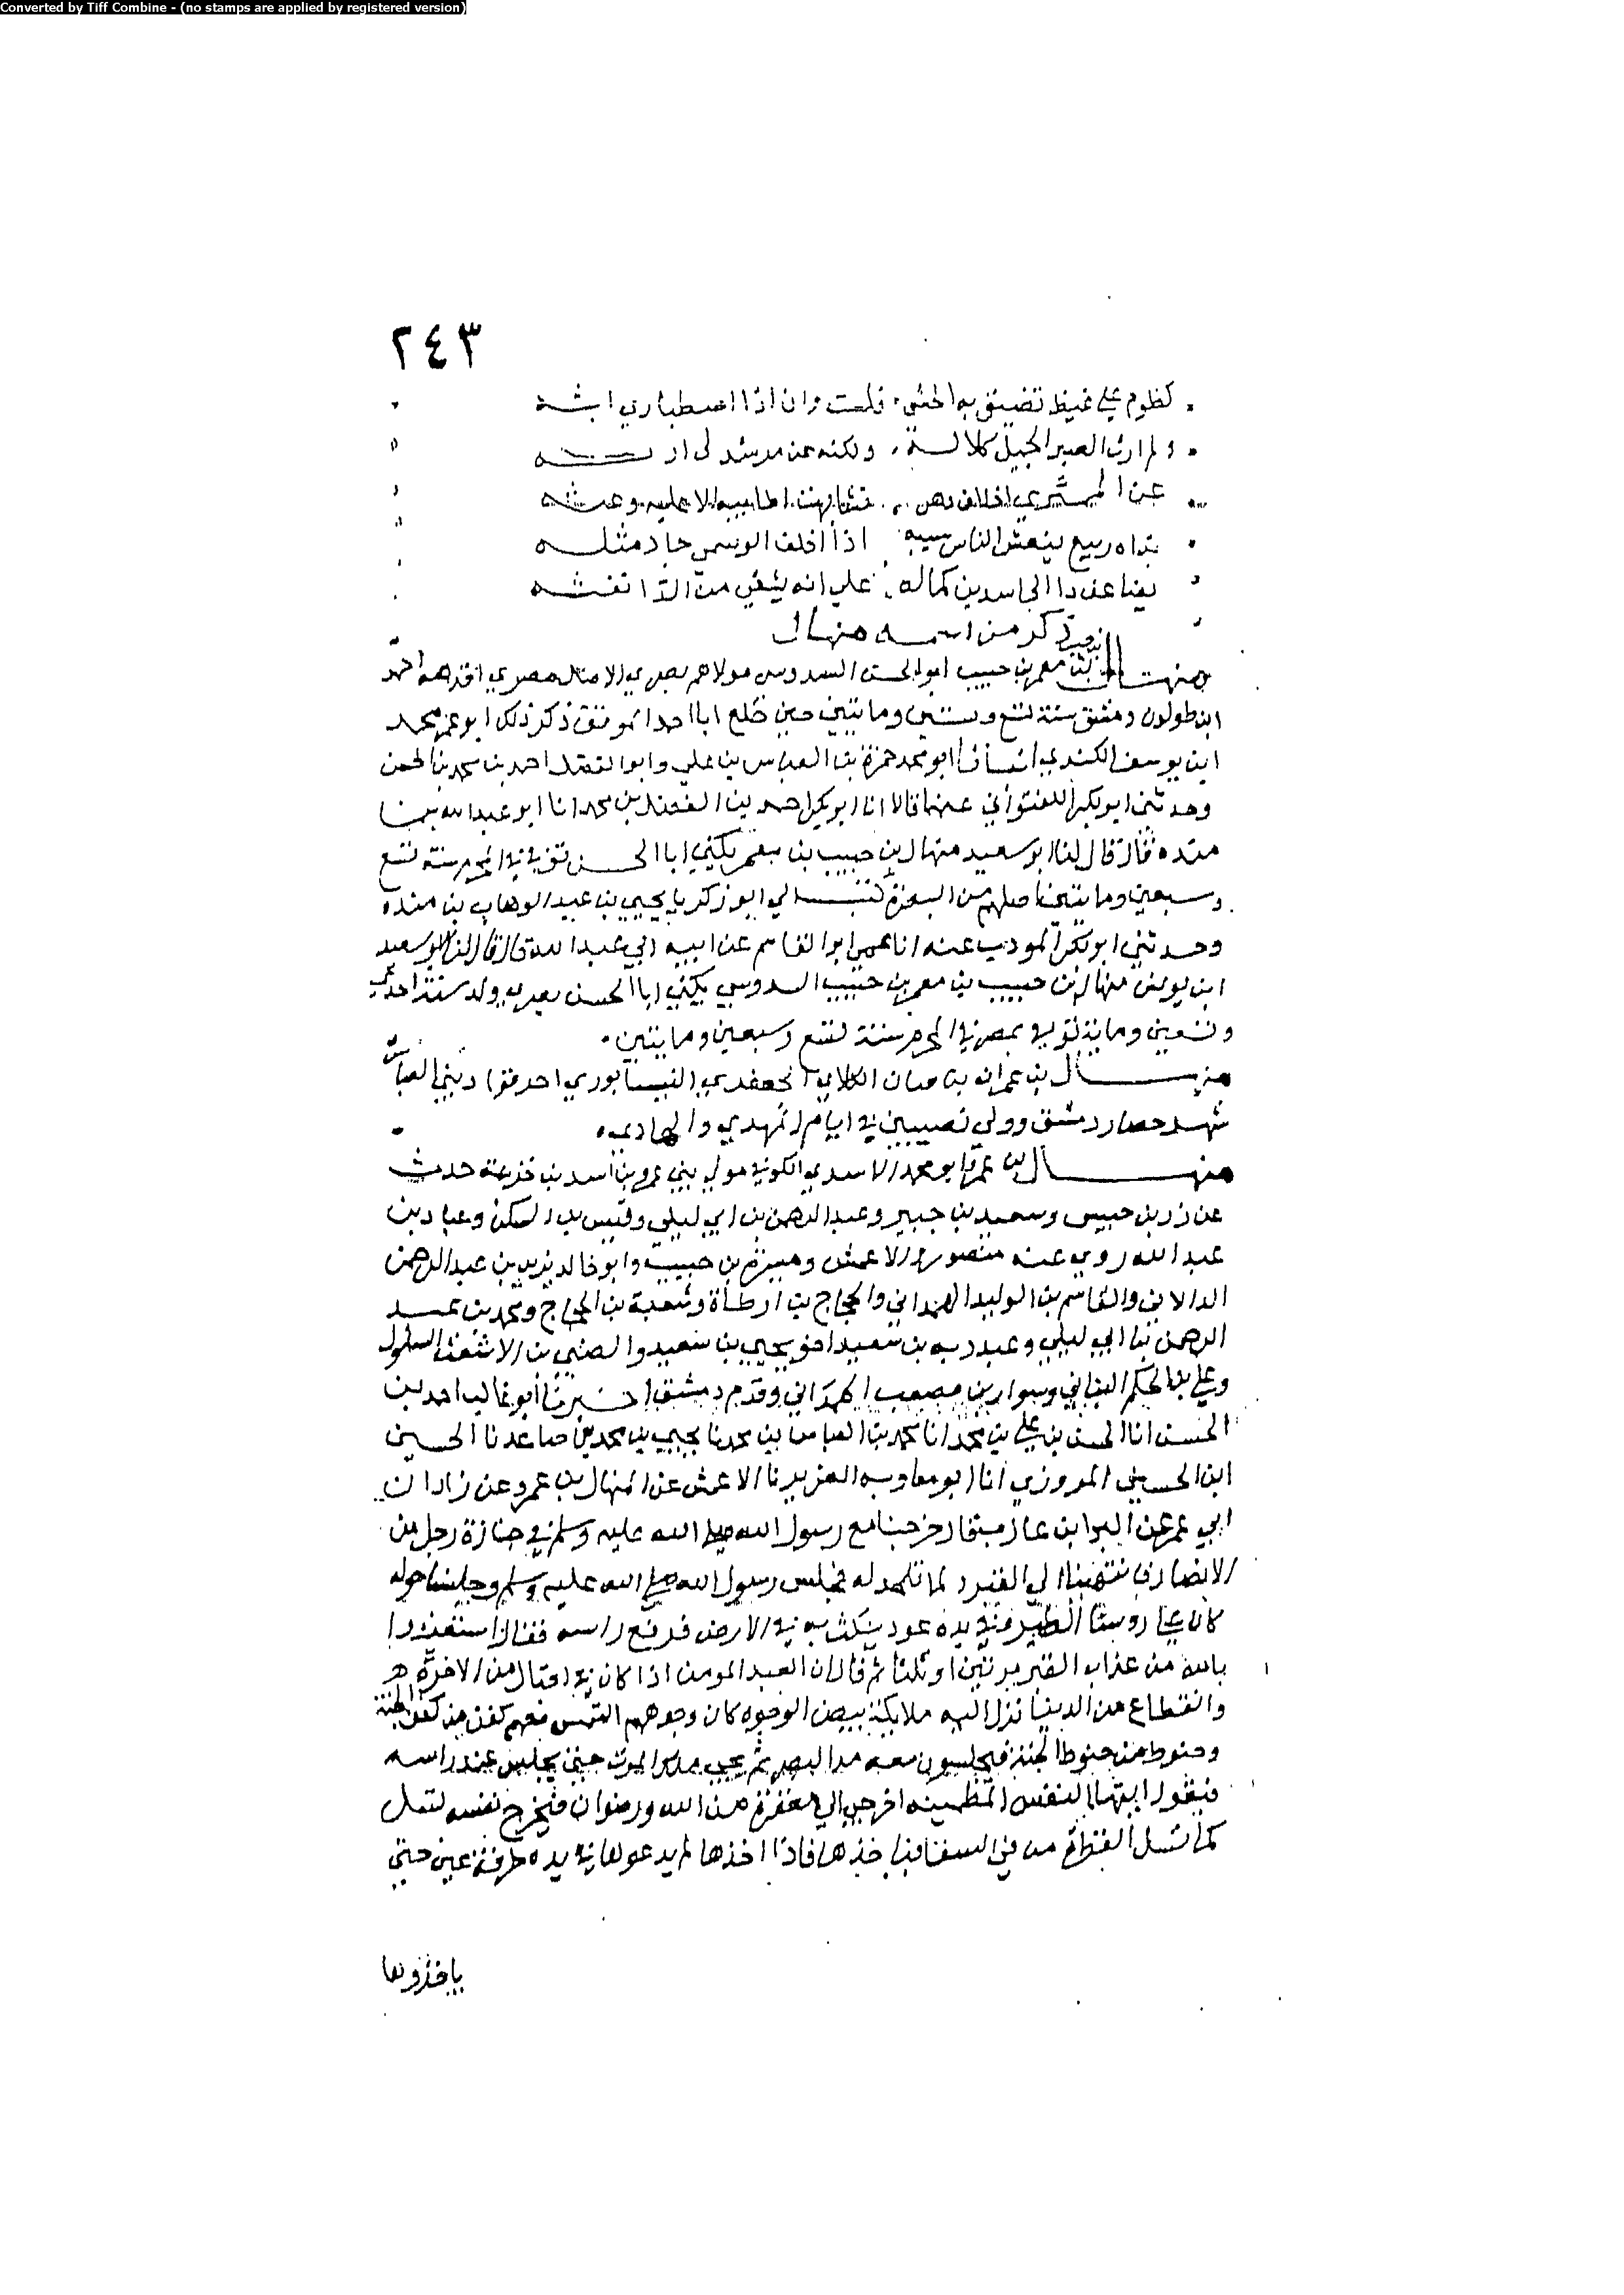 Converted by Tiff Combine - (no stamps are applied by registered version)
٢٤٣
كظوم على غيظ تضيق به الحشى فلست وان اذا اصطباري ابثه
ولم ارث الصبر الجميل كلالة ولكنه عن مرشد لي ارثه
عن المشتري اخلاف دهر تشابهت اطايبه الا عليه وعثه
نداه ربيع ينعش الناس سيبه اذا اخلف الوسمي جاد مثله
بفنا عن دا الحاسدين كماله على انه يشفي من الدا نفثه
ذكر من اسمه منهال
منهال بن معمر بن حبيب ابو الحسن السدوسي مولاهم بصري الاصل مصري اقدمه احمد
ابن طولون دمشق سنة تسع وستين ومايتين حين خلع ابا احمد الموفق ذكر ذلك ابو عمر محمد
ابن يوسف الكندي انبانا ابو محمد حمزة بن العباس بن علي وابو الفضل احمد بن محمد بن الحسن
وحدثني ابو بكر اللفتواني عنهما قالا انا ابو بكر احمد بن الفضل بن محمد انا ابو عبد الله بن
منده قال قال لنا ابو سعيد منهال بن حبيب بن معمر يكنى ابا الحسن توفي في المحرم سنة تسع
وسبعين ومايتين اصلهم من البصرة كتب الي ابو زكريا يحيى بن عبد الوهاب بن منده
وحدثني ابو بكر المودب عنه انا عمي ابو القاسم عن ابيه ابي عبد الله قال قال لنا ابو سعيد
ابن يونس منهال بن حبيب بن معمر بن حبيب السدوسي يكنى ابا الحسن بصري ولد سنة احدى
وتسعين وماية توفي بمصر في المحرم سنة تسع وسبعين ومايتين
منهال بن عمران بن الكلابي الجعفري النيسابوري احد بني العباس
شهد حصار دمشق وولي نصيبين في ايام المهدي والهادي
منهال بن عمرو ابو محمد الاسدي الكوفي مولى بني عمرو بن اسد بن خزيمة حدث
عن زر بن حبيش وسعيد بن جبير وعبد الرحمن بن ابي ليلى وقيس بن السكن وعباد بن
عبد الله روى عنه منصور والاعمش وميسرة بن حبيب وابو خالد يزيد بن عبد الرحمن
الدالاني والقاسم بن الوليد الهمداني والحجاج بن ارطاة وشعبة بن الحجاج ومحمد بن عبد
الرحمن بن ابي ليلى وعبد ربه بن سعيد اخو يحيى بن سعيد والصبي بن الاشعث السلولي
وعلي بن الحكم البناني وسوار بن مصعب الهمداني وقدم دمشق اخبرنا ابو غالب احمد بن
الحسن انا الحسن بن علي بن محمد انا محمد بن العباس بن محمد نا يحيى بن محمد بن صاعد نا الحسين
ابن الحسين المروزي انا ابو معاوية الضرير نا الاعمش عن المنهال بن عمرو عن زادان
ابي عمر عن البرا ابن عازب قال خرجنا مع رسول الله صلى الله عليه وسلم في جنازة رجل من
الانصار فانتهينا الى القبر ولما يلحد له فجلس رسول الله صلى الله عليه وسلم وجلسنا حوله
كان على روسنا الطير وفي يده عود ينكث به في الارض فرفع راسه فقال استعيذوا
بالله من عذاب القبر مرتين او ثلثا ثم قال ان العبد المومن اذا كان في اقبال من الاخرة
وانقطاع من الدنيا نزل اليه ملايكة بيض الوجوه كان وجوههم الشمس معهم كفن من كفن الجنة
وحنوط من حنوط الجنة فيجلسون معه مد البصر ثم يجي ملك الموت حتى يجلس عند راسه
فيقول ايتها النفس المطمينه اخرجي الى مغفرة من الله ورضوان فتخرج نفسه تسل
كما تسل القطرة من في السقا فياخذها فاذا اخذها لم يدعوها في يده طرفة عين حتى
ياخذوها